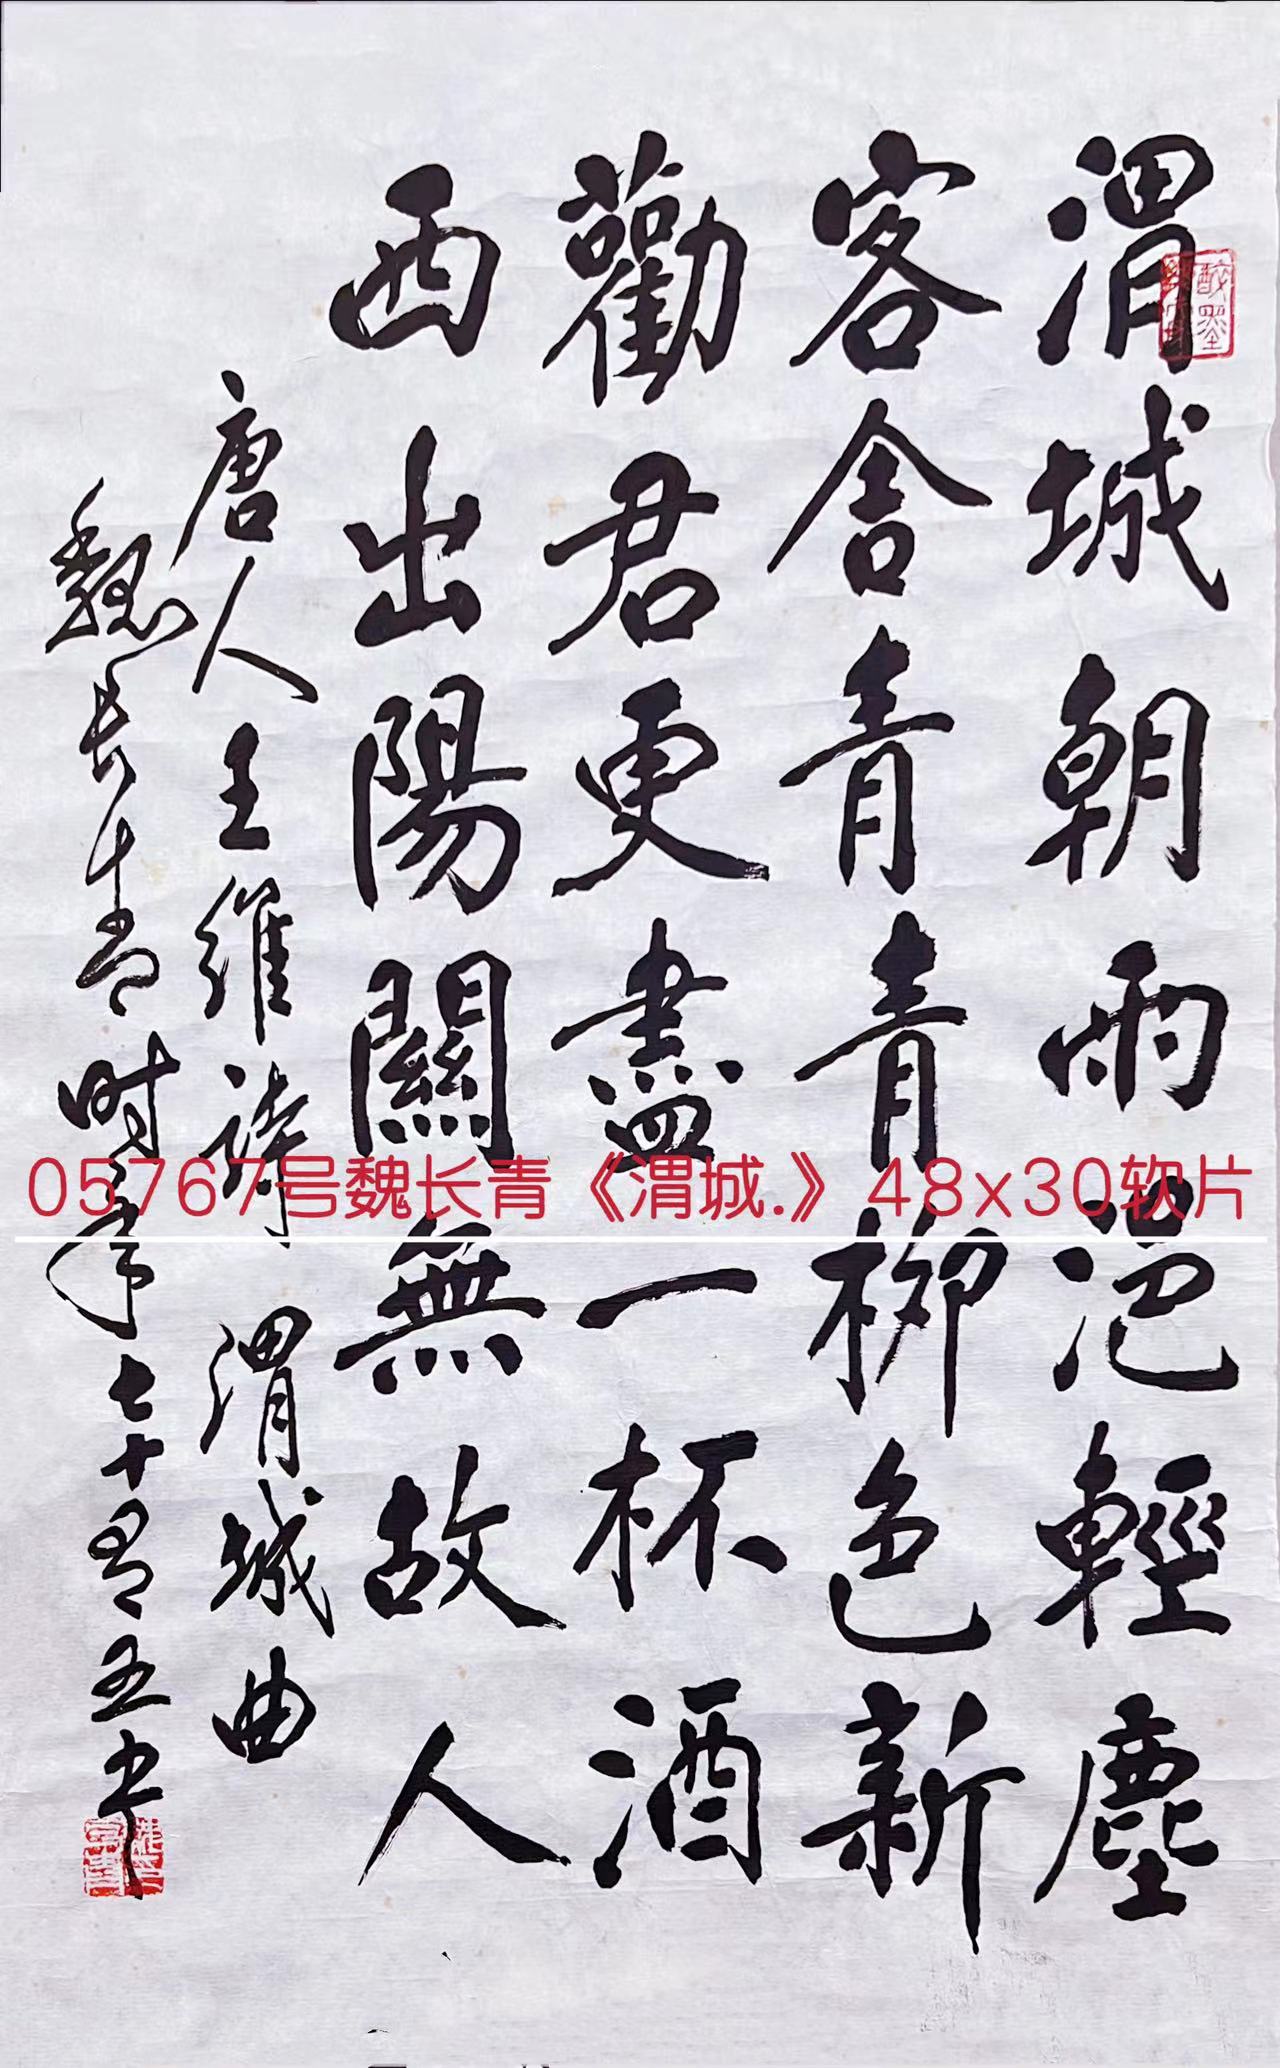 渭城朝雨浥輕塵
客舍青青柳色新
勸君更盡一杯酒
西出陽關無故人
唐人王維詩渭城曲
魏長青时年七十有五书
05767号魏长青《渭城.》48x30软片
醉墨